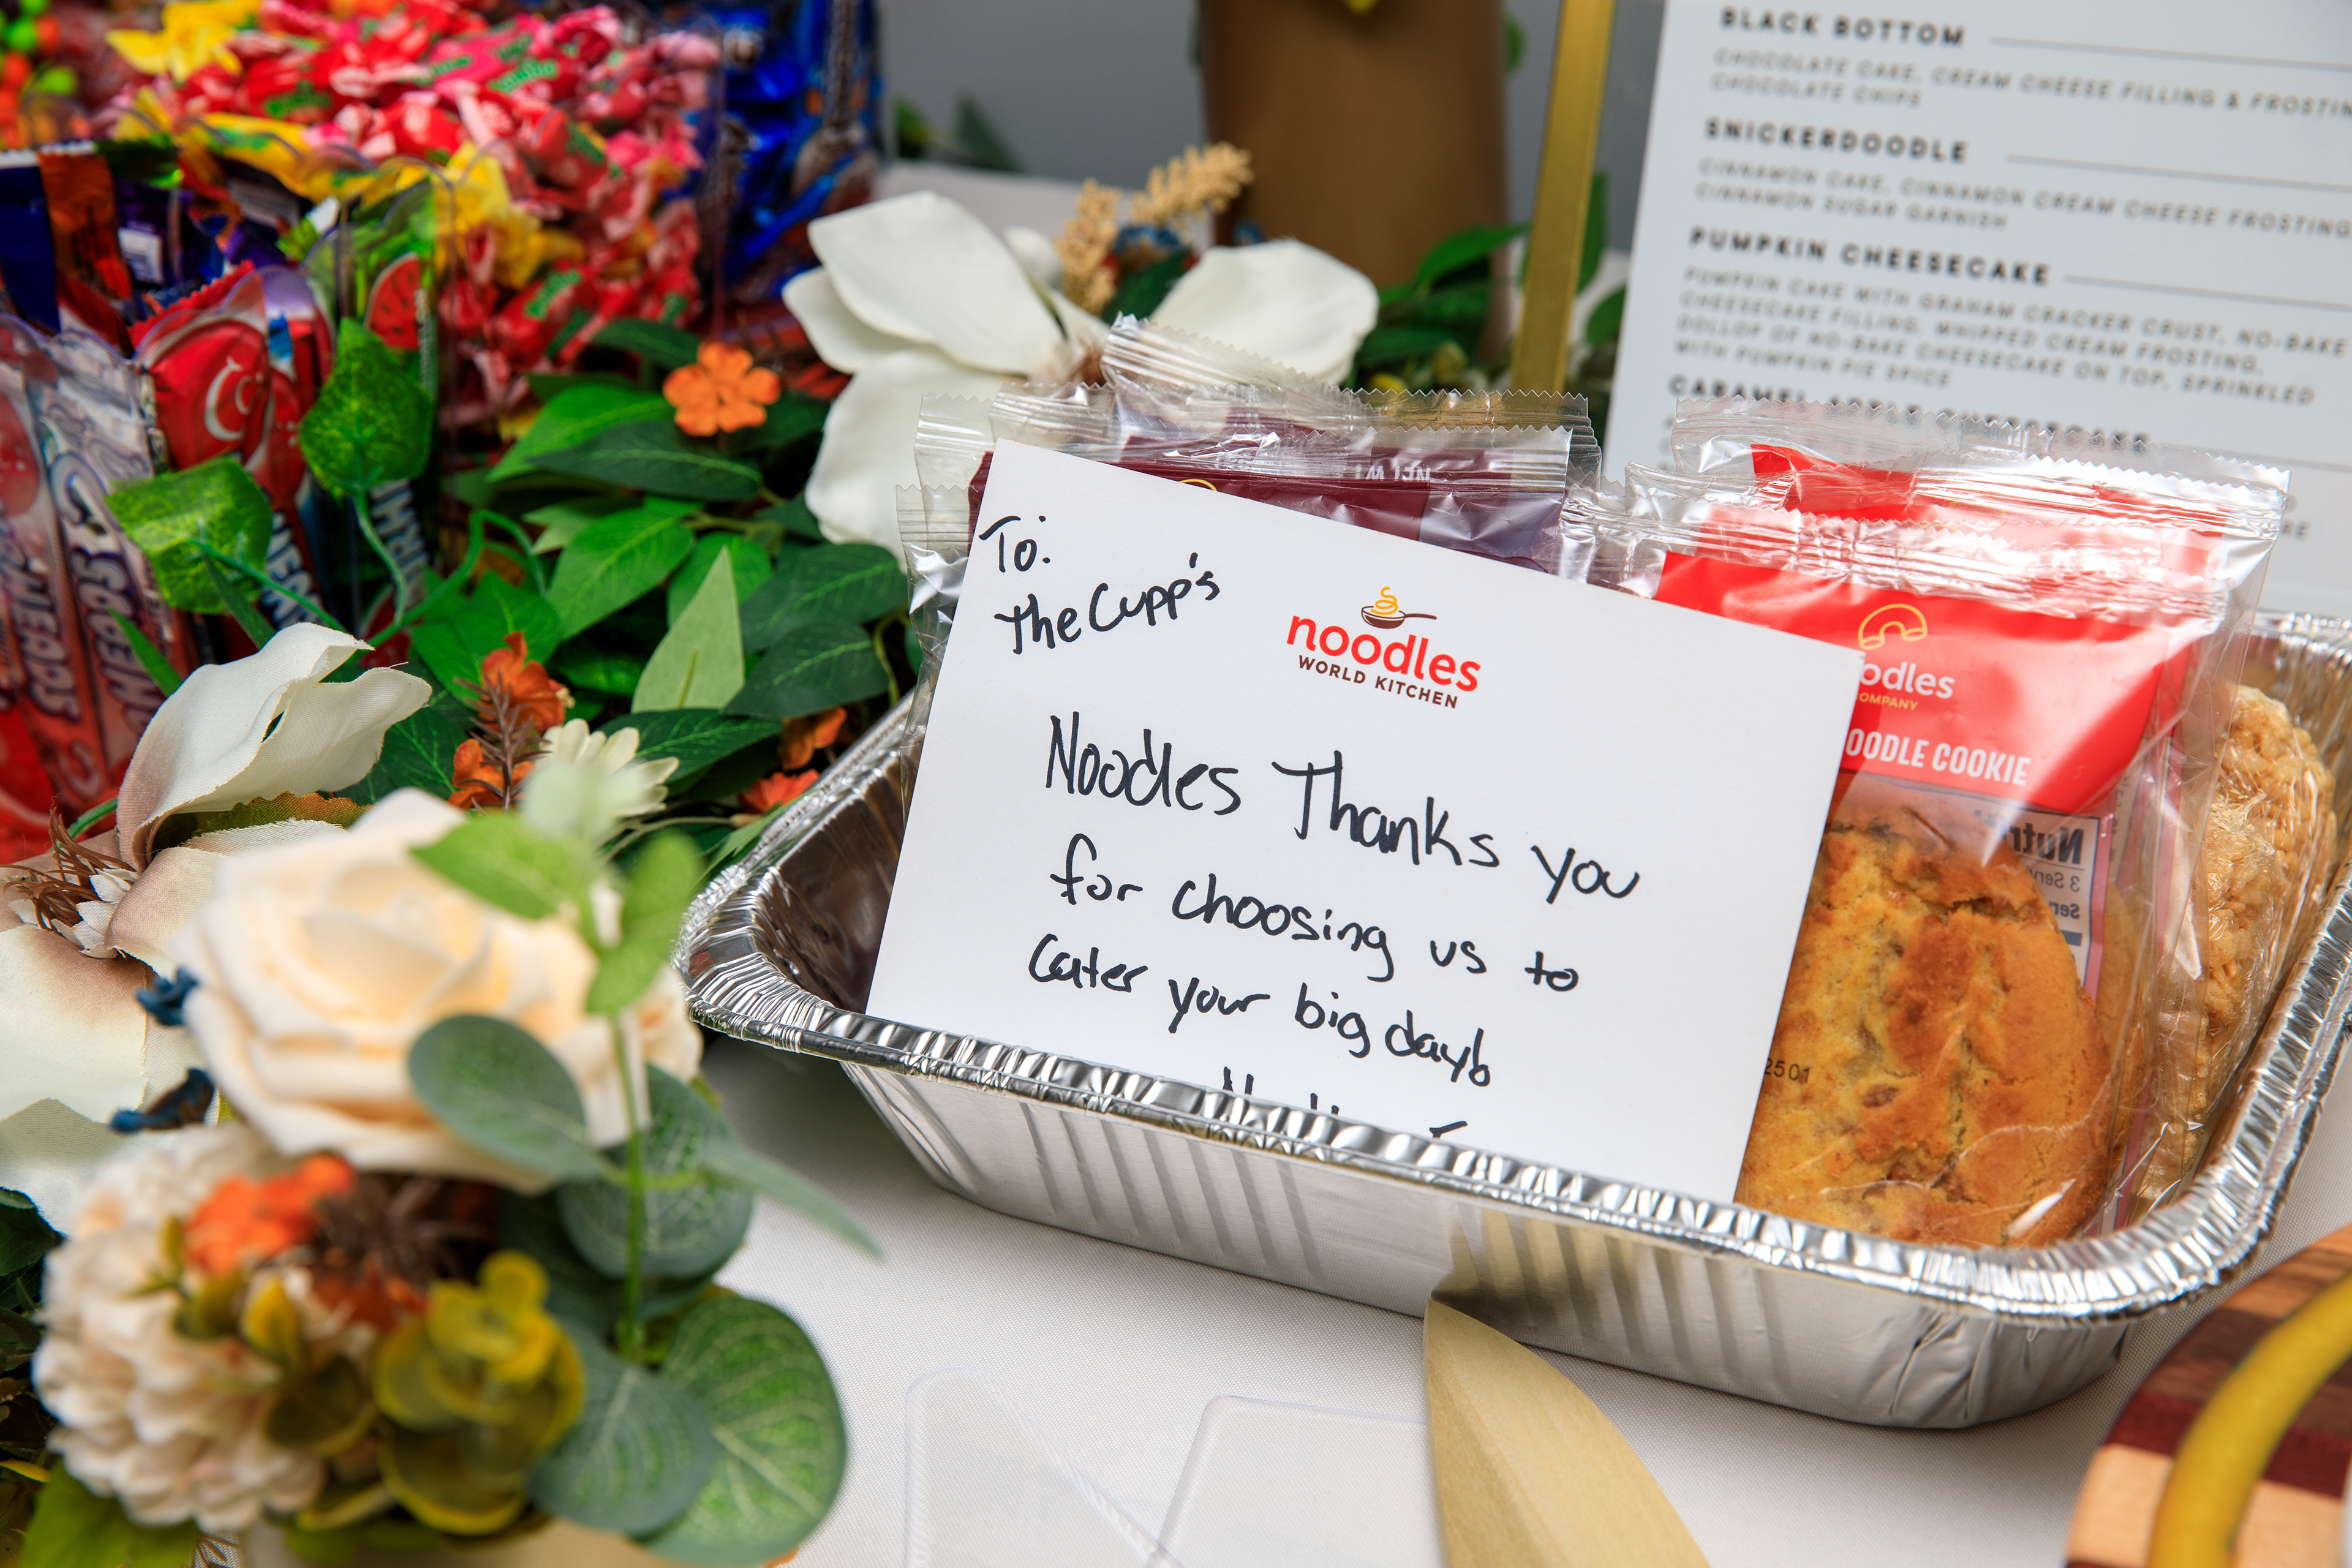 BLACK BOTTOM
CHOCOLATE CAKE, CREAM CHEESE FILLING & FROSTIN
CHOCOLATE CHIPS
SNICKERDOODLE
CINNAMON CAKE, CINNAMON CREAM CHEESE FROSTING
CINNAMON SUGAR GARNISH
PUMPKIN CHEESECAKE
PUMPKIN CAKE WITH GRAHAM CRACKER CRUST, NO-BAKE
CHEESECAKE FILLING, WHIPPED CREAM FROSTING,
DOLLOP OF NO-BAKE CHEESECAKE ON TOP, SPRINKLED
WITH PUMPKIN PIE SPICE
CARAMEL APPLE CHEESECAKE
To:
The Cupp's
noodles
WORLD KITCHEN
Noodles Thanks you
for choosing us to
Cater your big day!
oodles
OMPANY
OODLE COOKIE
Nutr
3 Serv
2501